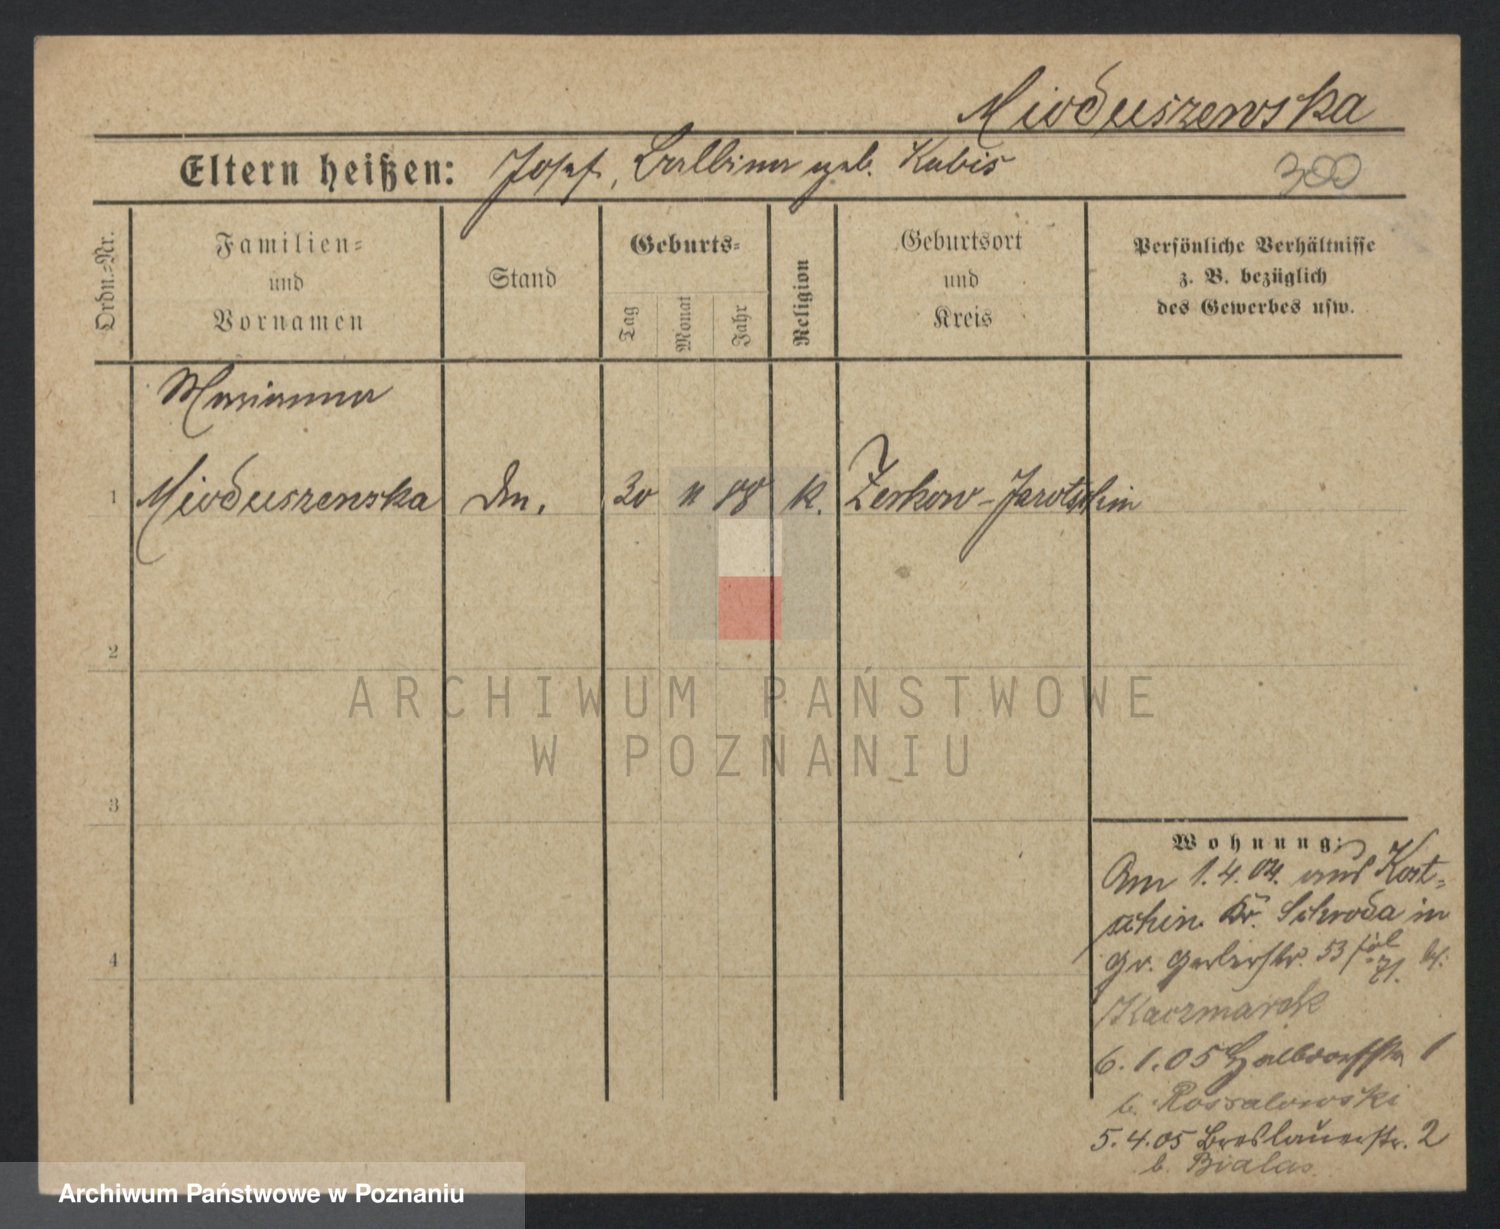 Mioduszewska
Eltern heißen: Josef, Balbina geb. Kubis
300
Ordn.-Nr.
Familien-
und
Vornamen
Stand
Geburts-
Tag
Monat
Jahr
Religion
Geburtsort
und
Kreis
Persönliche Verhältnisse
z. B. bezüglich
des Gewerbes usw.
Marianna
1 Mioduszewska Dm. 30 11 88 k. Zerkow-Jarotschin
2
3
4
Wohnung:
Am 1.4.04. aus Kost-
schin Kr. Schroda in
Gr. Gerberstr. 53 b.
Kaczmarek
6.1.05 Halbdorfstr 1
b. Rossalowski
5.4.05 Breslauerstr. 2
b. Bialas
ARCHIWUM PAŃSTWOWE
W POZNANIU
Archiwum Państwowe w Poznaniu